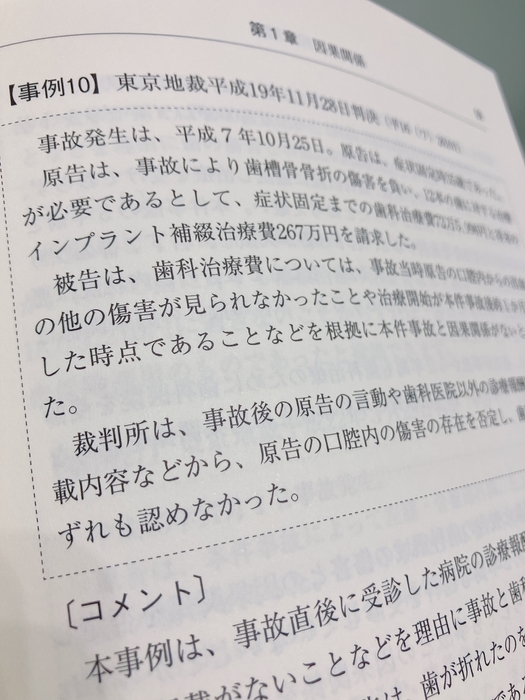 第1章 因果関係
【事例10】 東京地裁平成19年11月28日判決
事故発生は、平成7年10月25日。原告は、症状固定時
原告は、事故により歯槽骨骨折の傷害を負い、12本の歯に対する治療
が必要であるとして、症状固定までの歯科治療費
インプラント補綴治療費267万円を請求した。
被告は、歯科治療費については、事故当時原告の口腔内からの出血
の他の傷害が見られなかったことや治療開始が本件事故後約1か月
した時点であることなどを根拠に本件事故と因果関係がないと
た。
裁判所は、事故後の原告の言動や歯科医院以外の診療報酬
載内容などから、原告の口腔内の傷害の存在を否定し、
ずれも認めなかった。
〔コメント〕
本事例は、事故直後に受診した病院の診療報酬
載がないことなどを理由に事故と歯
は、歯が折れたのを